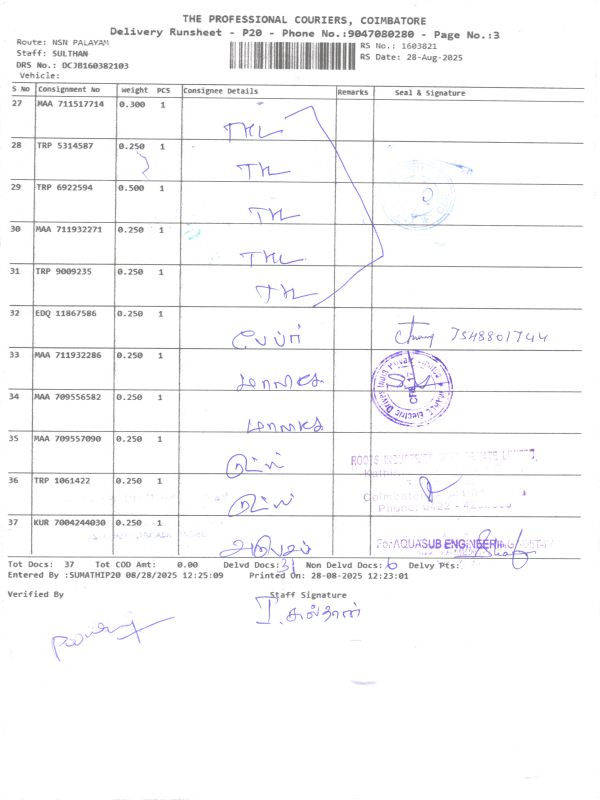 THE PROFESSIONAL COURIERS, COIMBATORE
Delivery Runsheet - P20 - Phone No.:9047080280 - Page No.:3
Route: NSN PALAYAM
RS No.: 1603821
Staff: SULTHAN
RS Date: 28-Aug-2025
DRS No.: DCJB160382103
Vehicle:
S No Consignment No Weight PCS Consignee Details Remarks Seal & Signature
27 MAA 711517714 0.300 1
THL
28 TRP 5314587 0.250 1
TL
29 TRP 6922594 0.500 1
TL
30 MAA 711932271 0.250 1
THL
31 TRP 9009235 0.250 1
TL
32 EDQ 11867586 0.250 1
பேப்பர் 7548801744
33 MAA 711932286 0.250 1
34 MAA 709556582 0.250 1
35 MAA 709557090 0.250 1
ROOTS INDUSTRIES PRIVATE LIMITED,
36 TRP 1061422 0.250 1
Coimbatore
Phone: 0422
37 KUR 7004244030 0.250 1
For AQUASUB ENGINEERING
Tot Docs: 37 Tot COD Amt: 0.00 Delvd Docs: 31 Non Delvd Docs: 6 Delvy Pts:
Entered By :SUMATHIP20 08/28/2025 12:25:09 Printed On: 28-08-2025 12:23:01
Verified By Staff Signature
I. சுல்தான்